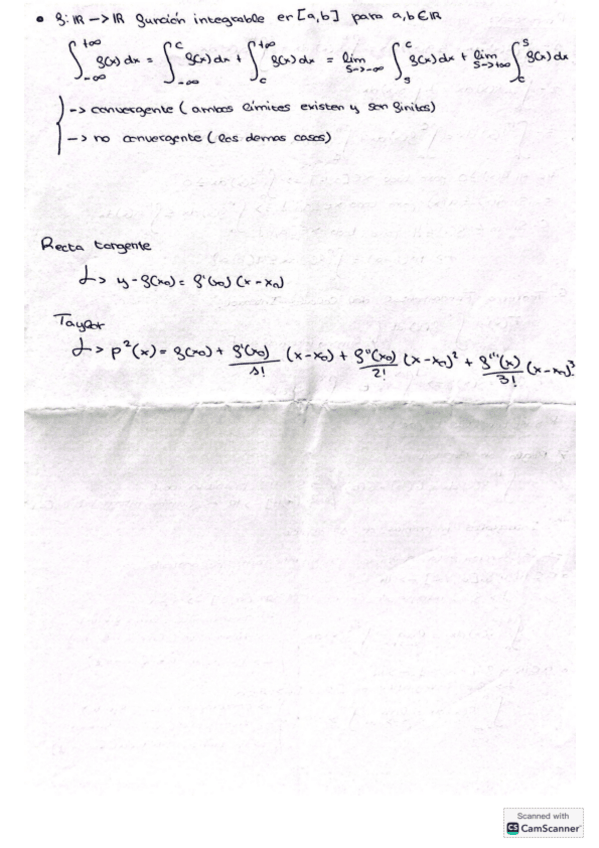 • f: ℝ -> ℝ función integrable en [a,b] para a,b ∈ ℝ
∫_{-∞}^{+∞} f(x) dx = ∫_{-∞}^{c} f(x) dx + ∫_{c}^{+∞} f(x) dx = lím_{s->-∞} ∫_{s}^{c} f(x) dx + lím_{s->+∞} ∫_{c}^{s} f(x) dx
-> convergente (ambos límites existen y son finitos)
-> no convergente (los demas casos)
Recta tangente
↳> y - f(x₀) = f'(x₀) (x - x₀)
Taylor
↳> p²(x) = f(x₀) + f'(x₀)/1! (x - x₀) + f''(x₀)/2! (x - x₀)² + f'''(x)/3! (x - x₀)³
Scanned with
CS CamScanner